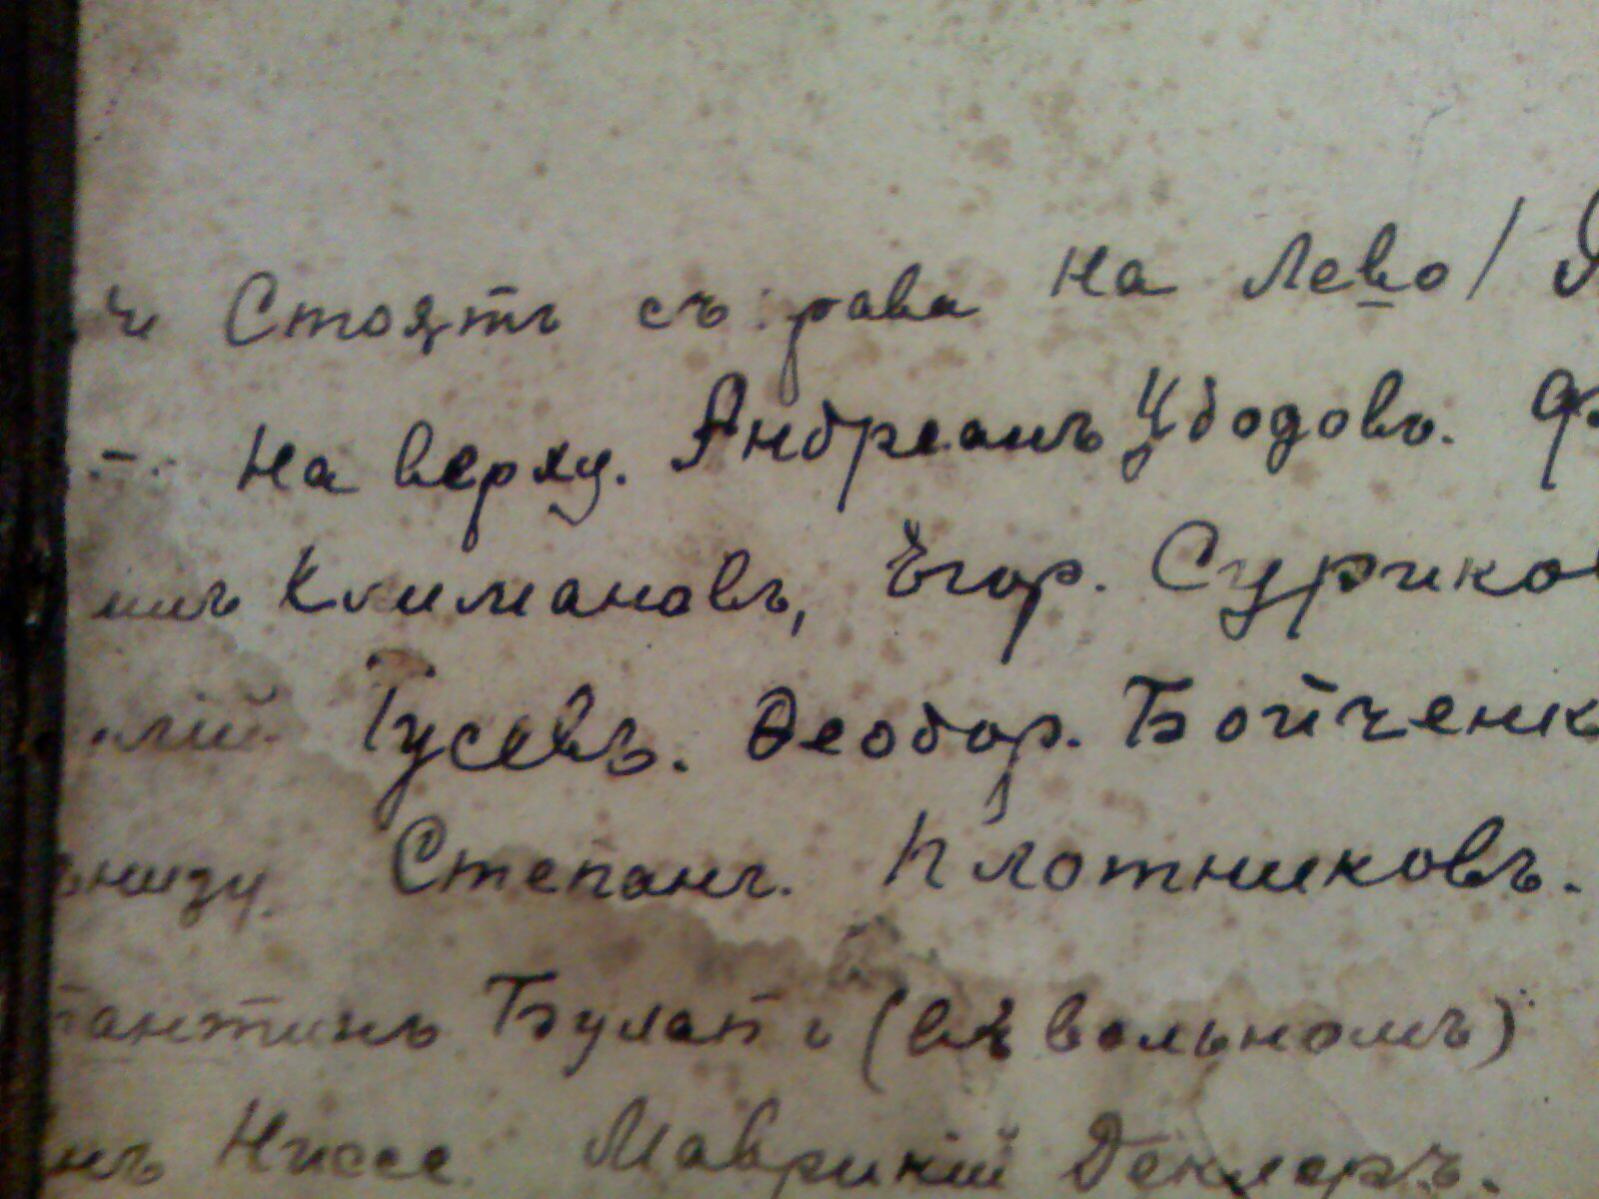 Стоятъ съ права на лево /
На верху. Андреанъ
Климановъ, Егор. Суриков
Гусевъ. Ѳеодор. Бойченк
внизу Степанъ. Плотниковъ.
тантинъ Булатъ (въ вольномъ)
нъ Ниссе Маврикій Деклеръ.